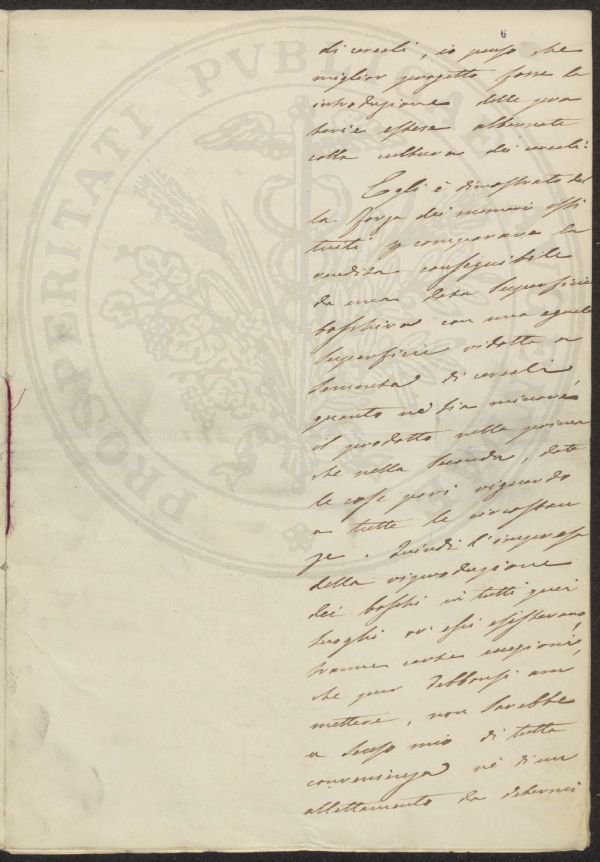 6
di cereali, io penso che
miglior progetto fosse la
introduzione delle pra
terie estese alternate
colla cultura dei cereali.
Egli è dimostrato del
la forza dei numeri isti
tuiti p comparare la
rendita conseguibile
da una data superficie
boschiva con una eguale
superficie ridotta a
semente di cereali
quanto ne sia minore
il prodotto nella prima
che nella seconda, date
le cose pari riguardo
a tutte le circostan
ze. Quindi l'impresa
della riproduzione
dei boschi in tutti quei
luoghi ov essi esistevano
tranne certe eccezioni,
che pur debbonsi am
mettere, non sarebbe
a senso mio di tutta
convenienza nè di un
allettamento da determi
PROSPERITATI PUBLICAE